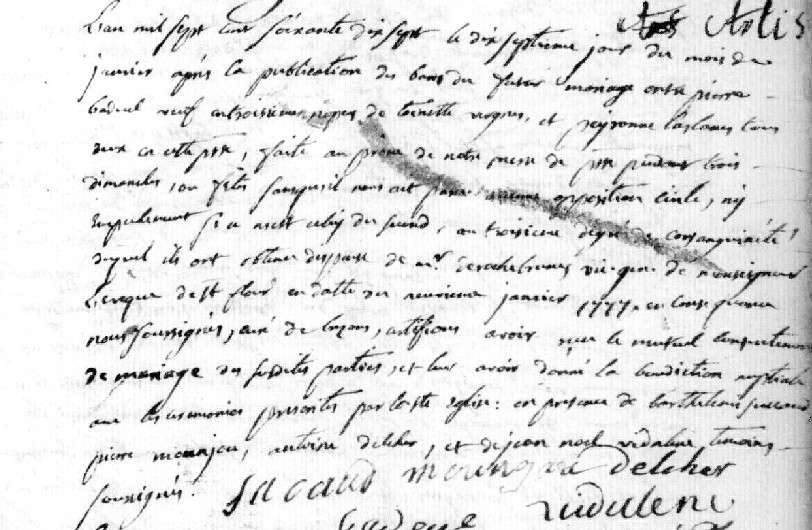 Artis
L'an mil sept cent soixante dix sept le dix septieme jour du mois de
janvier après la publication des bans du futur mariage entre pierre
veuf en troisiemes nopces de toinette vignes, et peyronne tous
deux en cette psse, faite au prône de notre messe de psse pendant trois
dimanches, ou fêtes sans qu'il nous ait parû aucune opposition civile, ny
empechement si ce n'est celuy du second, au troisieme degré de consanguinité
duquel ils ont obtenu dispense de mr vic. gen. de monseigneur
L'eveque de st flour en datte du neuvieme janvier 1777, en consequence
nous soussignés, curé de certifions avoir reçu le mutuel consentement
de mariage des susdites parties, et leur avoir donné la benediction nuptiale
avec les ceremonies prescrites par la ste eglise: en presence de barthelemi
pierre antoine delcher, et de jean noel vidalenc temoins
soussignés.
delcher
vidalenc